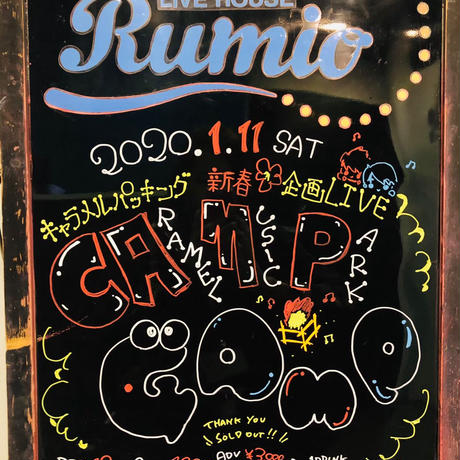 LIVE HOUSE
Rumio
2020.1.11 SAT
キャラメルパッキング 新春 企画LIVE
CARAMEL MUSIC PARK
CAMP
THANK YOU
SOLD OUT!!
ADV ¥3000